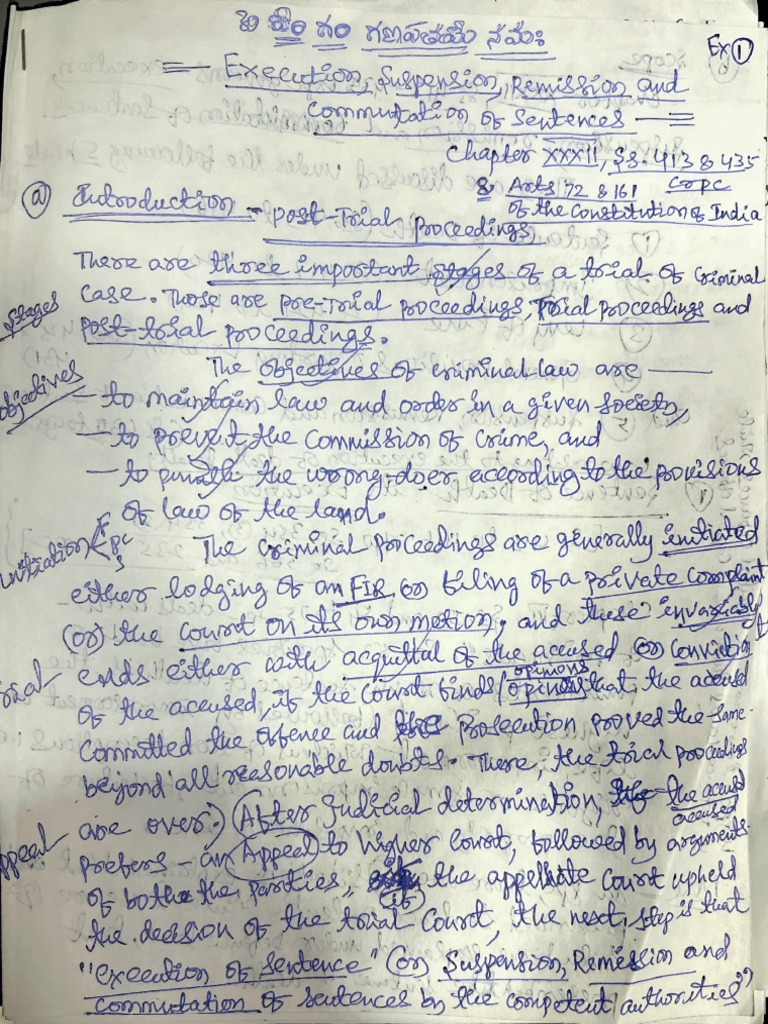 గం గణపతయే నమః
Ex ①
Execution, Suspension, Remission and
Commutation of Sentences
Chapter XXXII, SS. 413 & 435
Crpc
& Arts 72 & 161
of the Constitution of India
ⓐ Introduction - Post-Trial Proceedings
There are three important stages of a trial of criminal
Stages
case. Those are pre-Trial proceedings, Trial proceedings and
post-trial proceedings.
Objectives
The objectives of criminal law are —
— to maintain law and order in a given society,
— to prevent the commission of crime, and
— to punish the wrong-doer according to the provisions
of law of the land.
Initiation < F PC S
The criminal proceedings are generally initiated
either lodging of an FIR or filing of a private complaint
(or) the court on its own motion, and these invariably
ends either with acquittal of the accused (or) conviction
of the accused, if the court finds/opinions that the accused
opinions
committed the offence and prosecution proved the same
beyond all reasonable doubts. There, the trial proceedings
are over. After judicial determination, the accused
accused
Appeal
prefers - an Appeal to higher court, followed by arguments
of both the parties, if the appellate court upheld
the decision of the trial court, the next step is that
"execution of sentence" (or) Suspension, Remission and
commutation of sentences by the competent authorities"